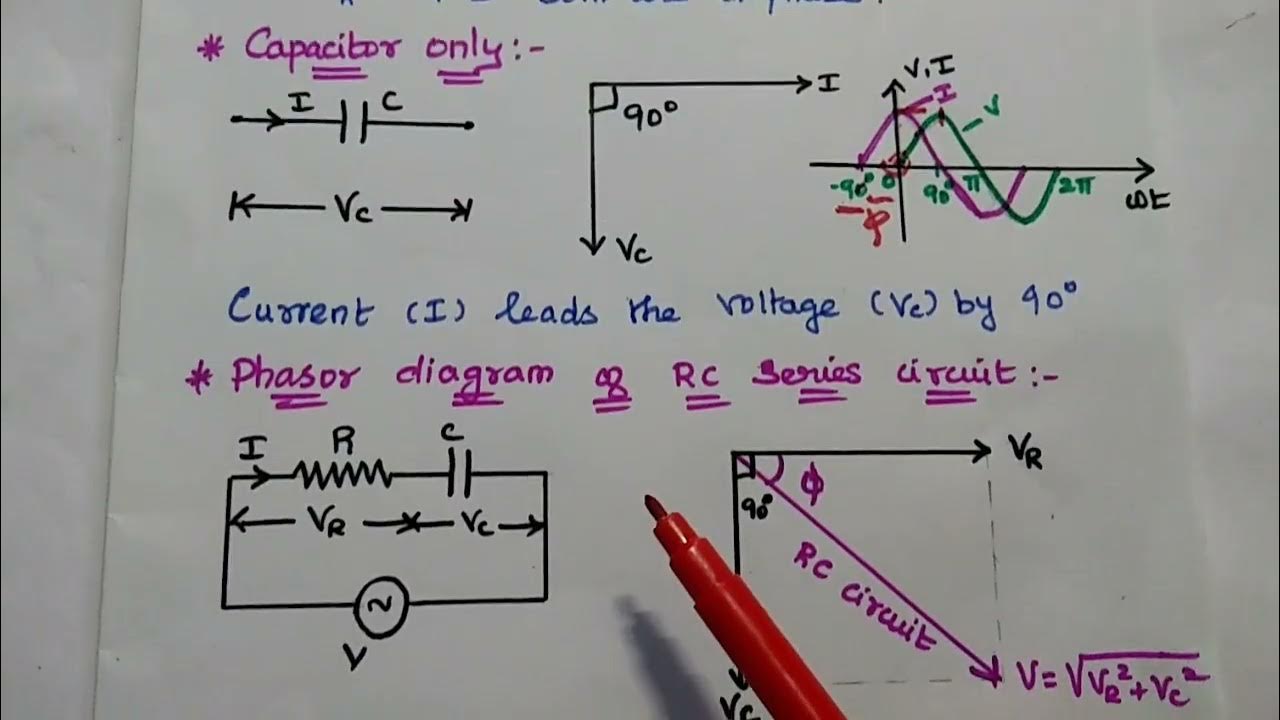 * Capacitor only:-
I C
Vc
90°
I
Vc
V,I
I
V
-90° 0 90° π 2π
φ
ωt
Current (I) leads the voltage (Vc) by 90°
* Phasor diagram of RC series circuit:-
I R C
VR Vc
~
V
VR
φ
90°
RC circuit
Vc
V=√VR²+Vc²